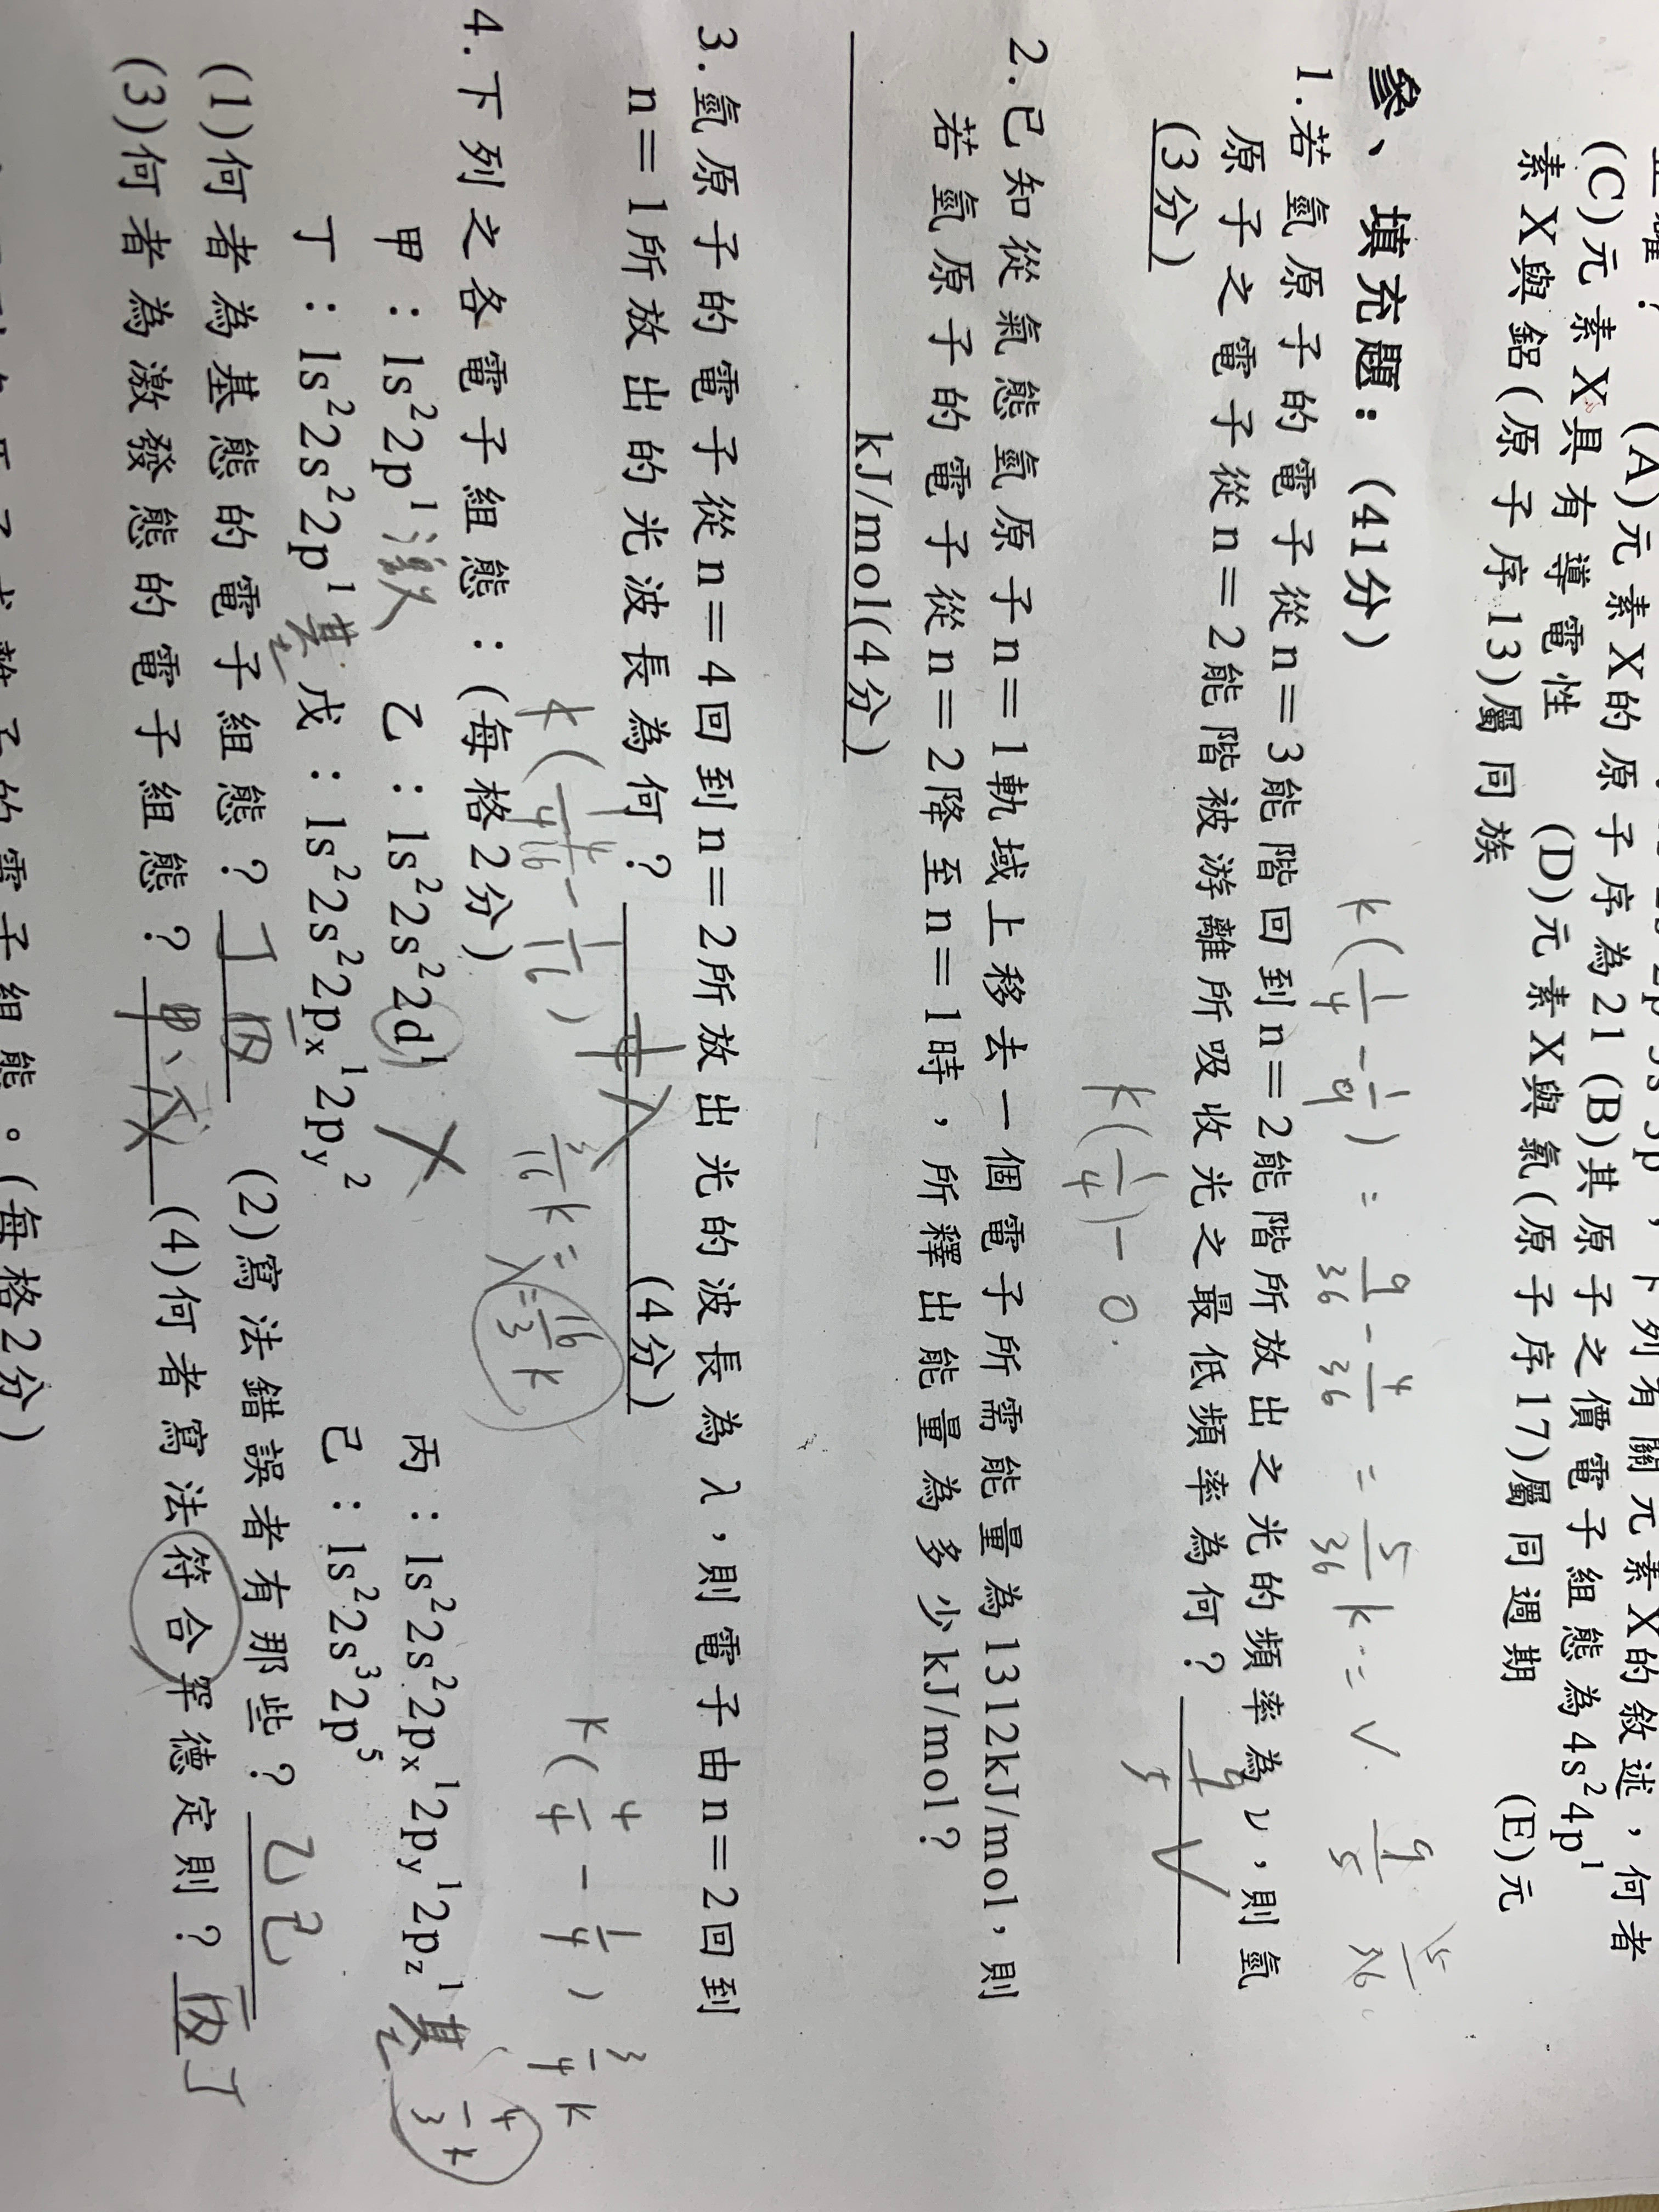 (C)元素X具有導電性 (D)元素X與氯(原子序17)屬同週期 (E)元
素X與鋁(原子序13)屬同族
參、填充題：(41分)
k(1/4 - 1/9) = 9/36 - 4/36 = 5/36 k = ν. 9/5 5/36
1.若氫原子的電子從n＝3能階回到n＝2能階所放出之光的頻率為ν，則氫
原子之電子從n＝2能階被游離所吸收光之最低頻率為何？ 9/5 ν
(3分)
k(1/4) - 0.
2.已知從氣態氫原子n＝1軌域上移去一個電子所需能量為1312kJ/mol，則
若氫原子的電子從n＝2降至n＝1時，所釋出能量為多少kJ/mol？
kJ/mol(4分)
3.氫原子的電子從n＝4回到n＝2所放出光的波長為λ，則電子由n＝2回到
n＝1所放出的光波長為何？ 1/4 λ (4分)
3/16 k = λ = 16/3 k
3/4 k
4.下列之各電子組態：(每格2分)
甲：1s²2p¹ 激 乙：1s²2s²2d¹ X 丙：1s²2s²2pₓ¹2p_y¹2p_z¹ 基 4/3 k
丁：1s²2s²2p¹ 基 戊：1s²2s²2pₓ¹2p_y² 己：1s²2s³2p⁵
(1)何者為基態的電子組態？丁 丙 (2)寫法錯誤者有那些？乙己
(3)何者為激發態的電子組態？甲、戊 (4)何者寫法符合罕德定則？丙丁